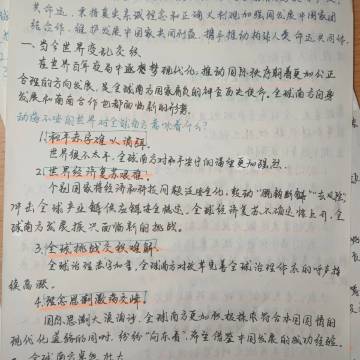 共命运，秉持真实亲诚理念和正确义利观加强同发展中国家团
结合作，维护发展中国家共同利益，携手推动构建人类命运共同体。
一、当今世界变乱交织
在世界百年变局中逐梦现代化，推动国际秩序朝着更加公正
合理的方向发展，是全球南方国家肩负的神圣历史使命。全球南方自身
发展和南南合作也都面临新的形势。
动荡不安的世界对全球南方意味着什么？
1.和平赤字难以消弭。
世界很不太平，全球南方对和平安宁的渴望更加强烈。
2.世界经济复苏艰难。
个别国家将经济和科技问题泛政治化，鼓动“脱钩断链”“去风险”，
冲击全球产业链供应链安全稳定，全球经济复苏不确定性上升，全
球南方发展振兴面临新的挑战。
3.全球挑战交织难解。
全球治理赤字加重，全球南方对改革完善全球治理体系的呼声持
续高涨。
4.理念思潮激荡交锋。
国际思潮大浪淘沙，全球南方更加积极探索符合本国国情的
现代化道路的同时，纷纷“向东看”，希望借鉴中国发展的成功经验。